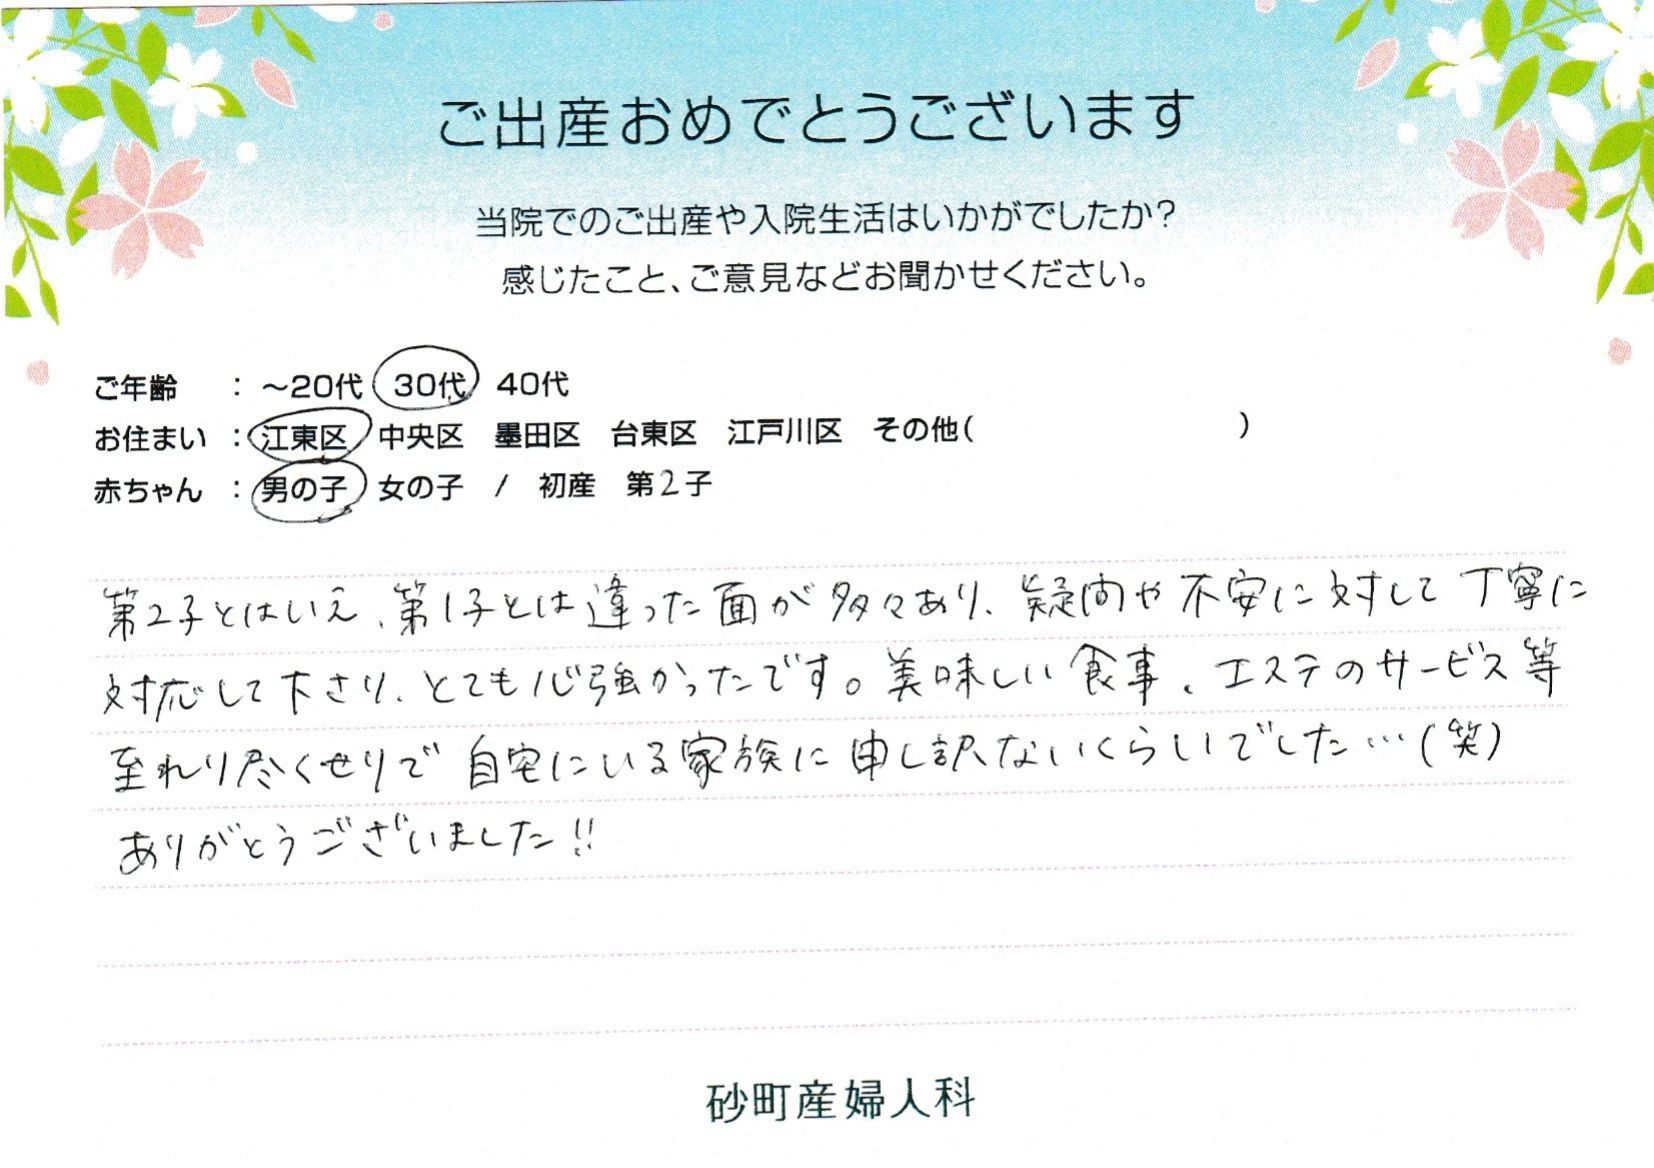 ご出産おめでとうございます
当院でのご出産や入院生活はいかがでしたか?
感じたこと、ご意見などお聞かせください。
ご年齢 : ～20代 30代 40代
お住まい : 江東区 中央区 墨田区 台東区 江戸川区 その他( )
赤ちゃん : 男の子 女の子 / 初産 第2子
第2子とはいえ、第1子とは違った面が多々あり、疑問や不安に対して丁寧に
対応して下さり、とても心強かったです。美味しい食事、エステのサービス等
至れり尽くせりで自宅にいる家族に申し訳ないくらいでした…(笑)
ありがとうございました!!
砂町産婦人科